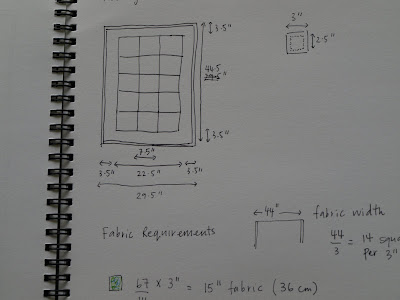 3.5"
44.5
29.5"
3.5"
7.5"
3.5" 22.5" 3.5"
29.5"
3"
2.5"
Fabric Requirements
44" fabric width
44/3 = 14 squa
per 3"
67 x 3" = 15" fabric (36 cm)